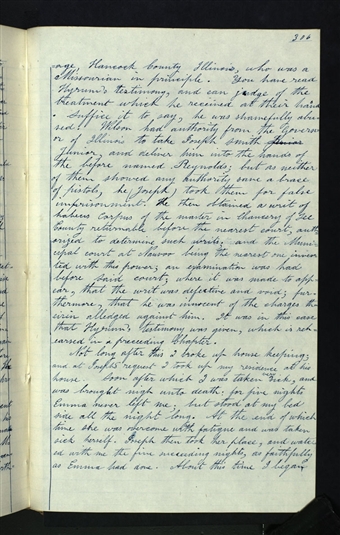 204
-age, Hancock County Illinois, who was a
Missourian in principle. You have read
Hyrum's testimony, and can judge of the
treatment which he received at their hand
. Suffice it to say, he was shamefully abu-
sed. Wilson had authority from the Govern
or of Illinois to take Joseph Smith
Junior, and deliver him into the hands of
the before named Reynolds; but as neither
of them showed any authority save a brace
of pistols, he (Joseph) took them for false
imprisonment. He then obtained a writ of
habeas corpus of the master in chancery of Lee
County returnable before the nearest court, auth-
orized to determine such writs; and the Munic-
ipal court at Nauvoo being the nearest one inves-
ted with this power; an examination was had
before said court; where it was made to app-
ear, that the writ was defective and void; fur-
thermore, that he was innocent of the charges th
erein alledged against him. It was in this case
that Hyrum's testimony was given, which is reh-
earsed in a preceding Chapter.
Not long after this I broke up house keeping;
and at Joseph's request I took up my residence at his
house. Soon after which I was taken sick, and
was brought nigh unto death; for five nights
Emma never left me, but stood at my bed-
side all the night long. At the end of which
time she was overcome with fatigue and was taken
sick herself. Joseph then took her place, and watch
ed with me the five succeeding nights, as faithfully
as Emma had done. About this time I began